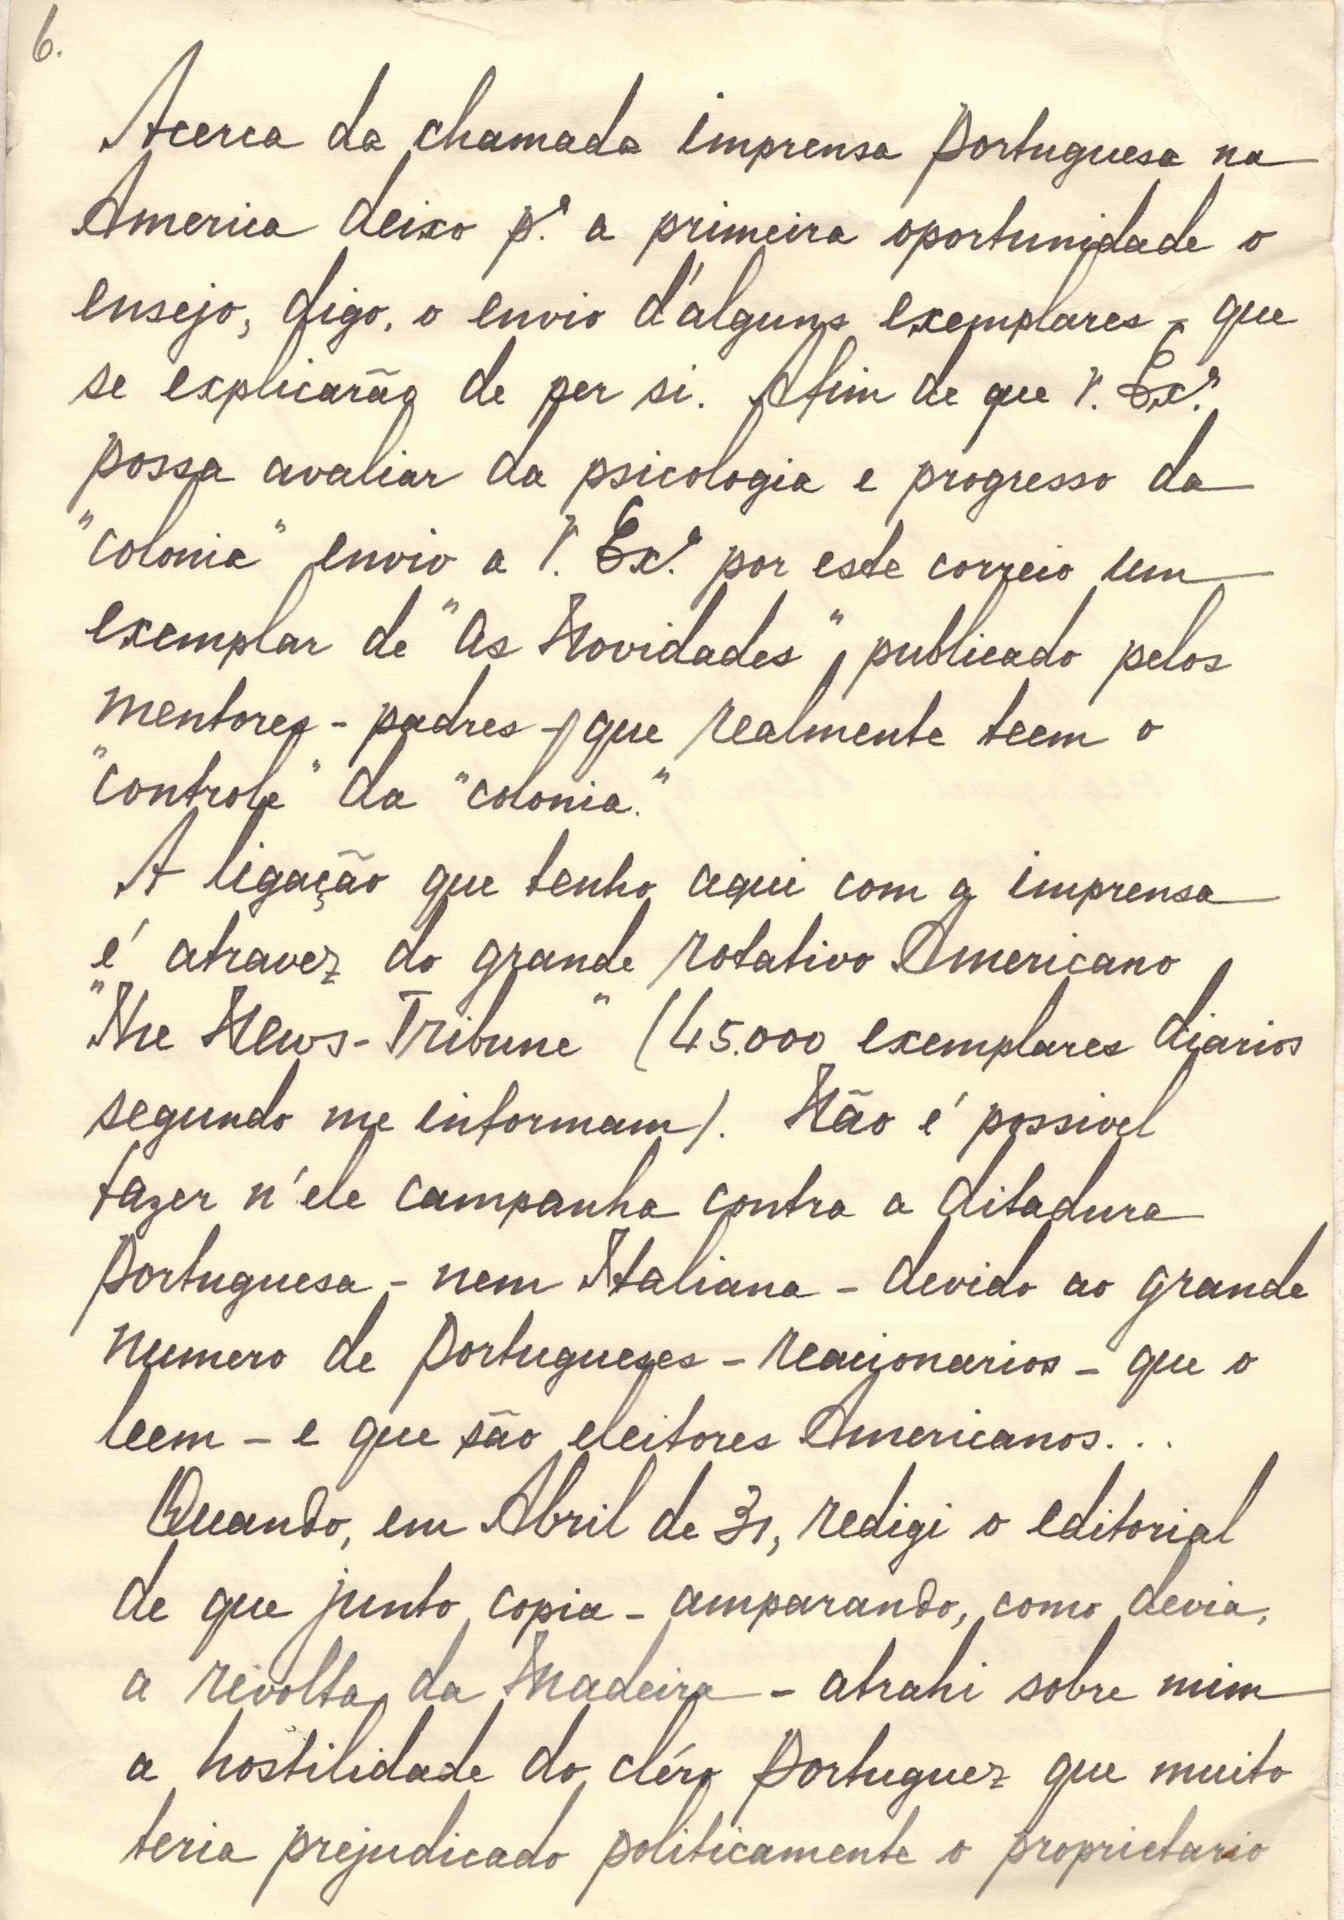 6.
Acerca da chamada imprensa Portuguesa na
America deixo pª. a primeira oportunidade o
ensejo, digo, o envio d'alguns exemplares - que
se explicarão de per si. Afim de que V. Exª.
possa avaliar da psicologia e progresso da
"colonia" envio a V. Exª. por este correio um
exemplar de "As Novidades", publicado pelos
mentores - padres - que realmente teem o
"controle" da "colonia."
A ligação que tenho aqui com a imprensa
é atravez do grande rotativo Americano
"The News-Tribune" (45.000 exemplares diarios
segundo me informam). Não é possivel
fazer n'ele campanha contra a ditadura
Portuguesa - nem Italiana - devido ao grande
numero de Portugueses - reacionarios - que o
leem - e que são eleitores Americanos...
Quando, em Abril de 31, redigi o editorial
de que junto copia - amparando, como devia,
a revolta da Madeira - atrahi sobre mim
a hostilidade do cléro Portuguez que muito
teria prejudicado politicamente o proprietario